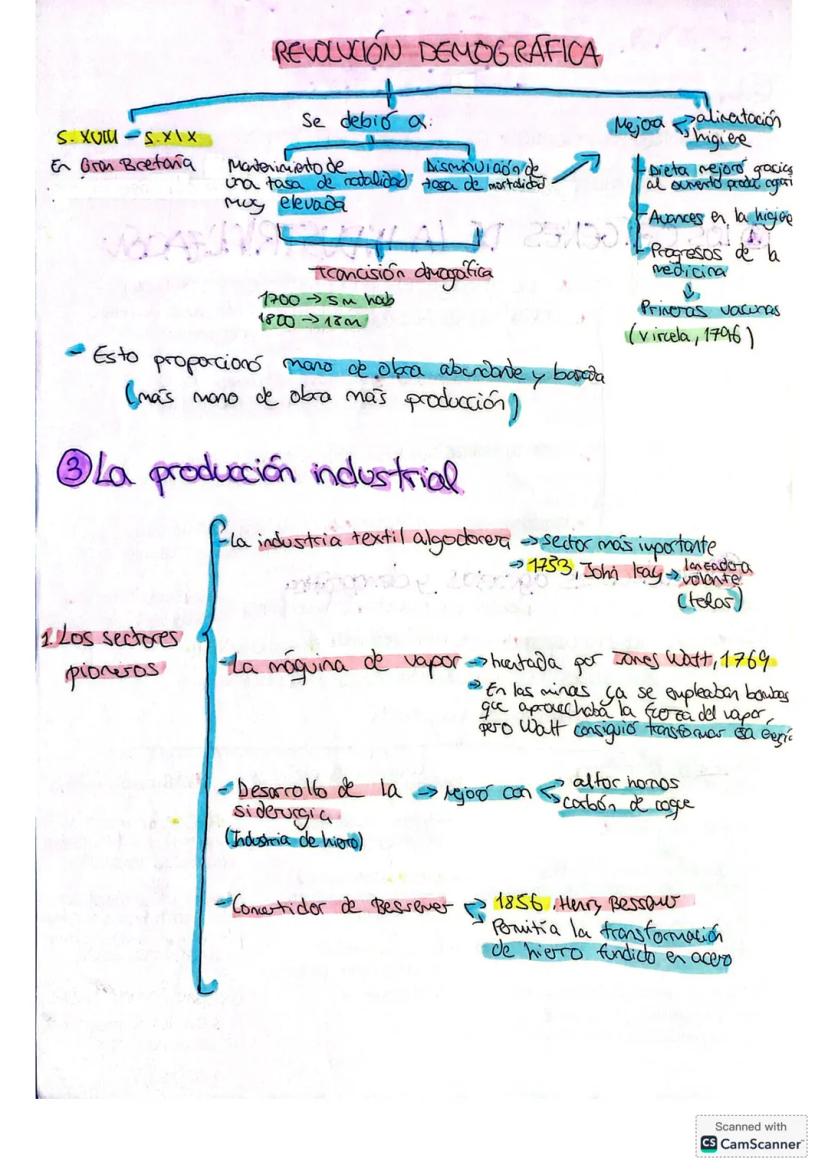 REVOLUCIÓN DEMOGRÁFICA
S. XVIII - S. XIX
En Gran Bretaña
Se debió a:
Mantenimiento de
una tasa de natalidad
muy elevada
Disminución de
tasa de mortalidad
Mejora
alimentación
higiene
- Dieta mejoró gracias
al aumento produc. agrari
- Avances en la higiene
- Progresos de la
medicina
Primeras vacunas
(viruela, 1796)
Transición demográfica
1700 → 5m hab
1800 → 18m
- Esto proporcionó mano de obra abundante y barata
(más mano de obra más producción)
③ La producción industrial
1. Los sectores
pioneros
- La industria textil algodonera → sector más importante
→ 1733, John Kay → lanzadora
volante
(telas)
- La máquina de vapor → Inventada por James Watt, 1769
→ En las minas ya se empleaban bombas
que aprovechaba la fuerza del vapor,
pero Watt consiguió transformar esa
- Desarrollo de la
siderurgia
(Industria de hierro)
→ Mejoró con
altos hornos
carbón de coque
- Convertidor de Bessemer
1856, Henry Bessemer
Permitía la transformación
de hierro fundido en acero
Scanned with
CS CamScanner